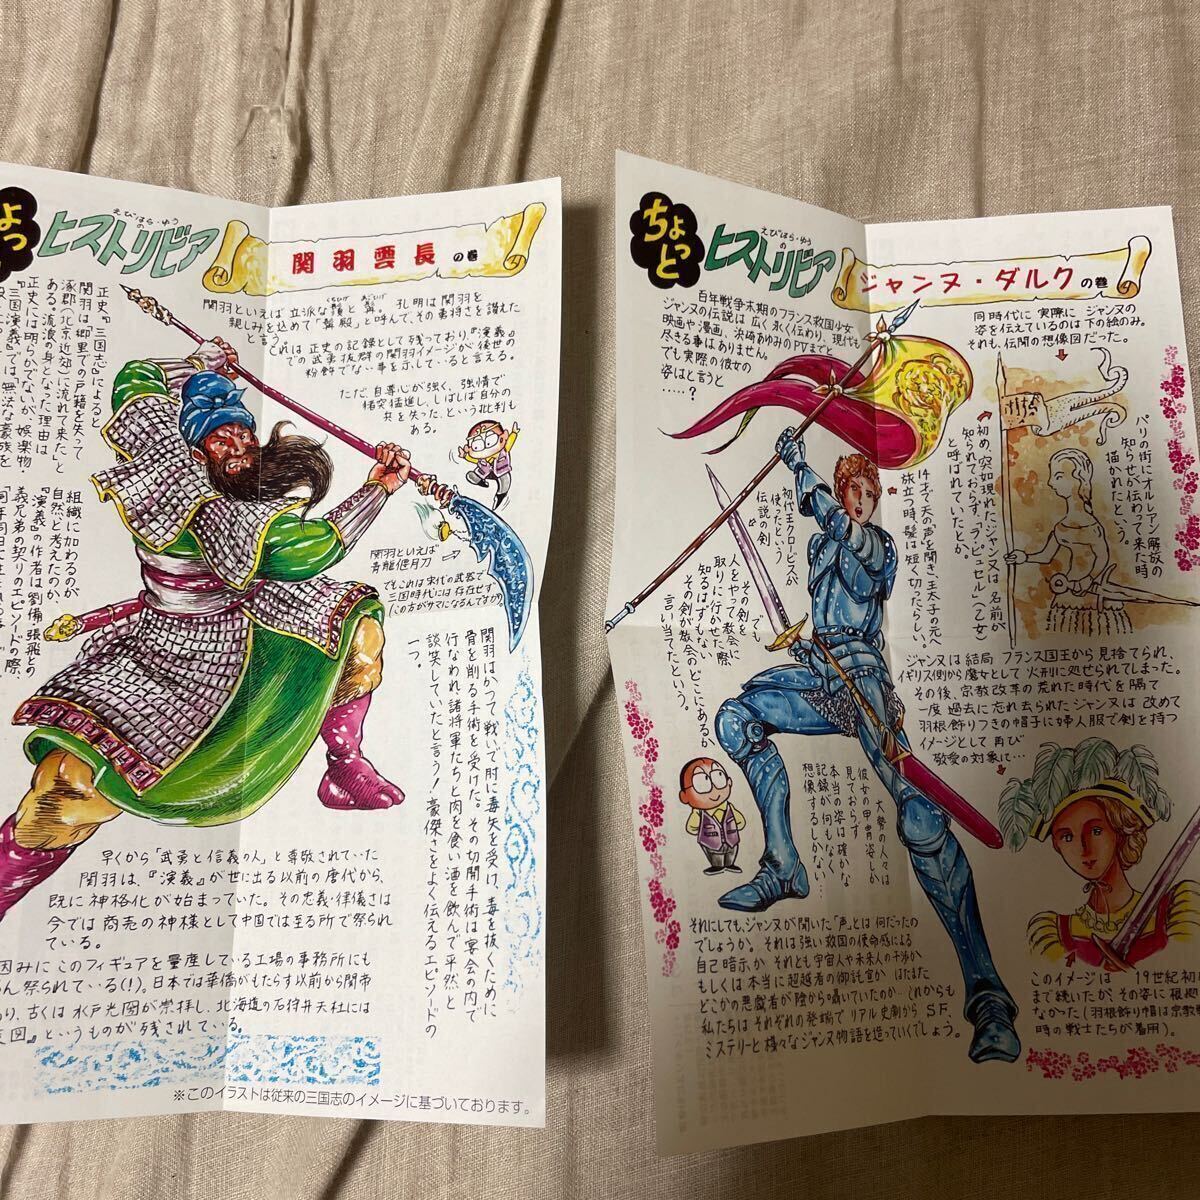 よっ
えびはら・ゆう
の
ヒストリビア
関羽雲長の巻
正史『三国志』によると
関羽は「郷里での戸籍を失って
涿郡(北京近郊)に流れて来た」と
ある。流浪の身となった理由は
正史には明らかでないが、娯楽物
『三国演義』では、「無法な豪族を
組織に加わるのが
自然と考えたのか
『演義』の作者は劉備・張飛との
義兄弟の契りのエピソードの際、
関羽といえば立派な鬚と髯。孔明は関羽を
親しみを込めて「髯殿」と呼んで、その勇将さを讃えた
と言う。
これは正史の記録として残っており『演義』
での武勇抜群の関羽イメージが後世の
粉飾でない事を示していると言える。
ただ、自尊心が強く、強情で
猪突猛進し、しばしば自分の
兵を失った、という批判も
ある。
関羽といえば
青龍偃月刀
でもこれは宋代の武器で
三国時代には存在せず
(この方がサマになるんですが)
関羽はかつて戦いで肘に毒矢を受け、毒を抜くために
骨を削る手術を受けた。その切開手術は宴会の内で
行なわれ、諸将軍たちと肉を食い酒を飲んで平然と
談笑していたと言う！豪傑さをよく伝えるエピソードの
一つ。
早くから「武勇と信義の人」と尊敬されていた
関羽は、『演義』が世に出る以前の唐代から、
既に神格化が始まっていた。その忠義・律儀さは
今では商売の神様として中国では至る所で祭られ
ている。
因みにこのフィギュアを量産している工場の事務所にも
ん祭られている(！)。日本では華僑がもたらす以前から関帝
あり、古くは水戸光圀が崇拝し、北海道の石狩弁天社には
図』というものが残されている。
※このイラストは従来の三国志のイメージに基づいております。
ちょっと
えびはら・ゆう
の
ヒストリビア
ジャンヌ・ダルクの巻
百年戦争末期のフランス救国少女、
ジャンヌの伝説は広く永く伝わり、現代も
映画や漫画、浜崎あゆみのPVまでと
尽きる事はありません。
でも実際の彼女の
姿はと言うと
……？
同時代に実際にジャンヌの
姿を伝えているのは下の絵のみ。
それも、伝聞の想像図だった。
パリの街にオルレアン解放の
知らせが伝わって来た時
描かれたという。
初め、突如現れたジャンヌは名前が
知られておらず「ラ・ピュセル(乙女)」
と呼ばれていたとか。
14才で天の声を聞き、王太子の元へ
旅立つ時、髪は短く切ったらしい。
初代王クロービスが
使ったという
伝説の剣
でも
その剣を
人をやって教会に
取りに行かせた際
知るはずもない
その剣が教会のどこにあるか
言い当てたという。
ジャンヌは結局フランス国王から見捨てられ、
イギリス側から魔女として火刑に処せられてしまった。
その後、宗教改革の荒れた時代を隔て
一度過去に忘れ去られたジャンヌは改めて
羽根飾りつきの帽子に婦人服で剣を持つ
イメージとして再び
敬愛の対象に…
大勢の人では
彼女の甲冑姿しか
見ておらず
本当の姿は確かな
記録が何もなく
想像するしかない…
それにしても、ジャンヌが聞いた「声」とは何だったの
でしょうか。それは強い救国の使命感による
自己暗示か、それとも宇宙人や未来人の干渉か
もしくは本当に超越者の御託宣か はたまた
どこかの悪戯者が陰から囁いていたのか…これからも
私たちは それぞれの発端で リアル史劇からSF、
ミステリーと様々なジャンヌ物語を造っていくでしょう。
このイメージは 19世紀初
まで続いたが、その姿に根拠
なかった(羽根飾り帽は宗教戦
時の戦士たちが着用)。